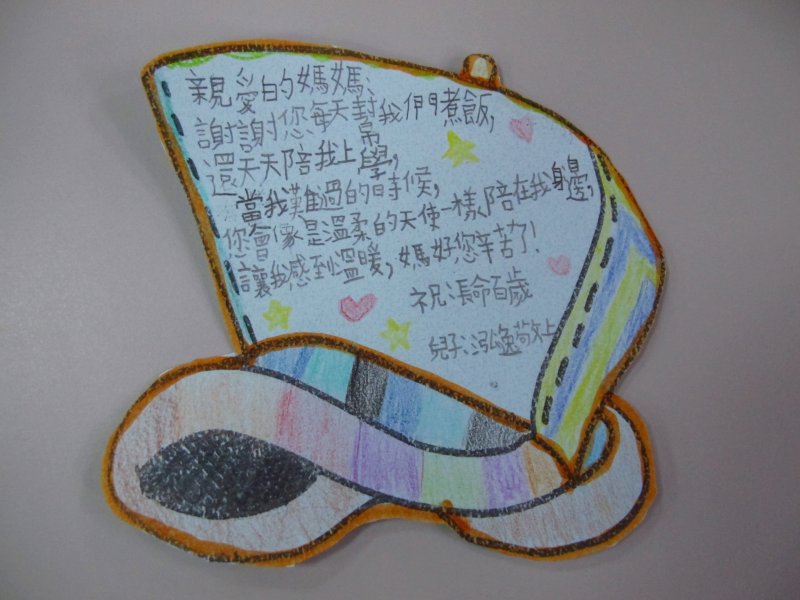 親愛的媽媽：
謝謝您每天幫我們煮飯，
還天天陪我上學，
當我難過的時候，
您會像是溫柔的天使一樣陪在我身邊，
讓我感到溫暖，媽好您辛苦了！
祝：長命百歲
兒子：泓逸敬上